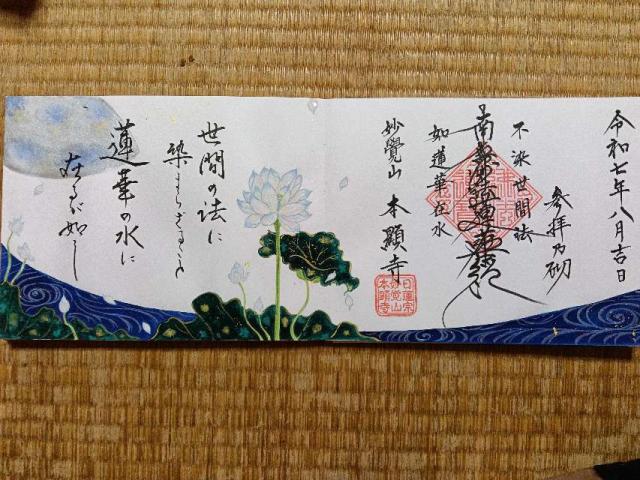 令和七年八月吉日
参拝乃砌
不染世間法
南無妙法蓮華経
如蓮華在水
妙覺山 本顯寺
日蓮宗
妙覚山
本顕寺
世間の法に
染まらざること
蓮華の水に
在るが如し